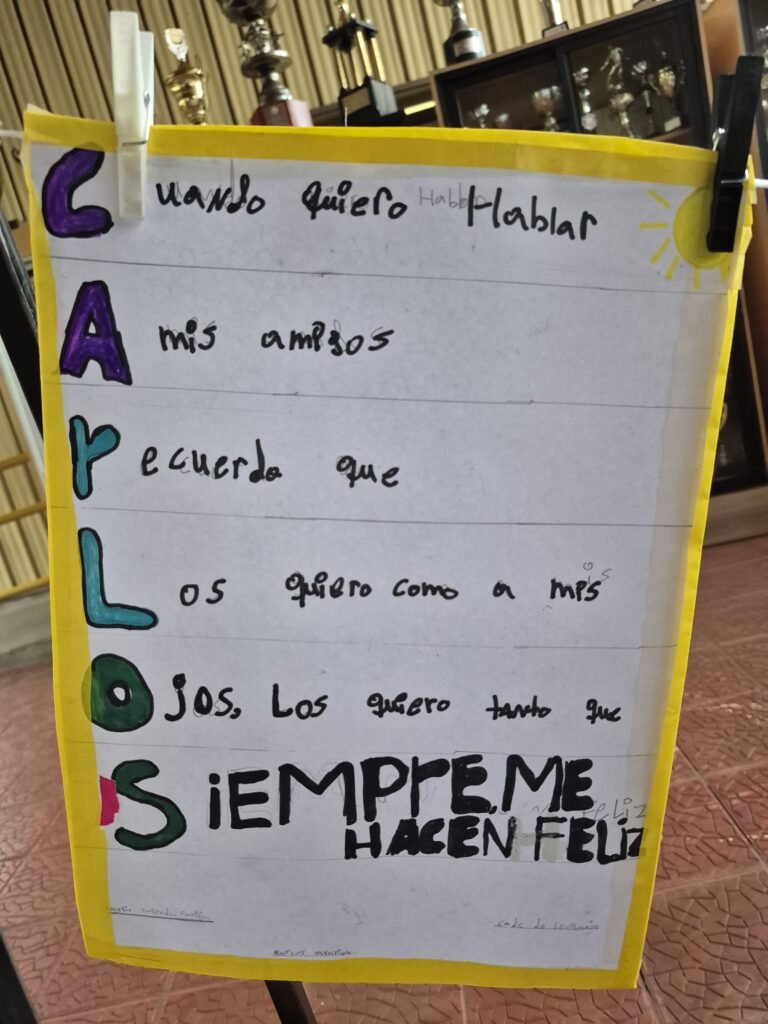 Cuando quiero Hablar
A mis amigos
recuerda que
Los quiero como a mis
Ojos, Los quiero tanto que
SiEMPrE ME
HACEN FELiZ